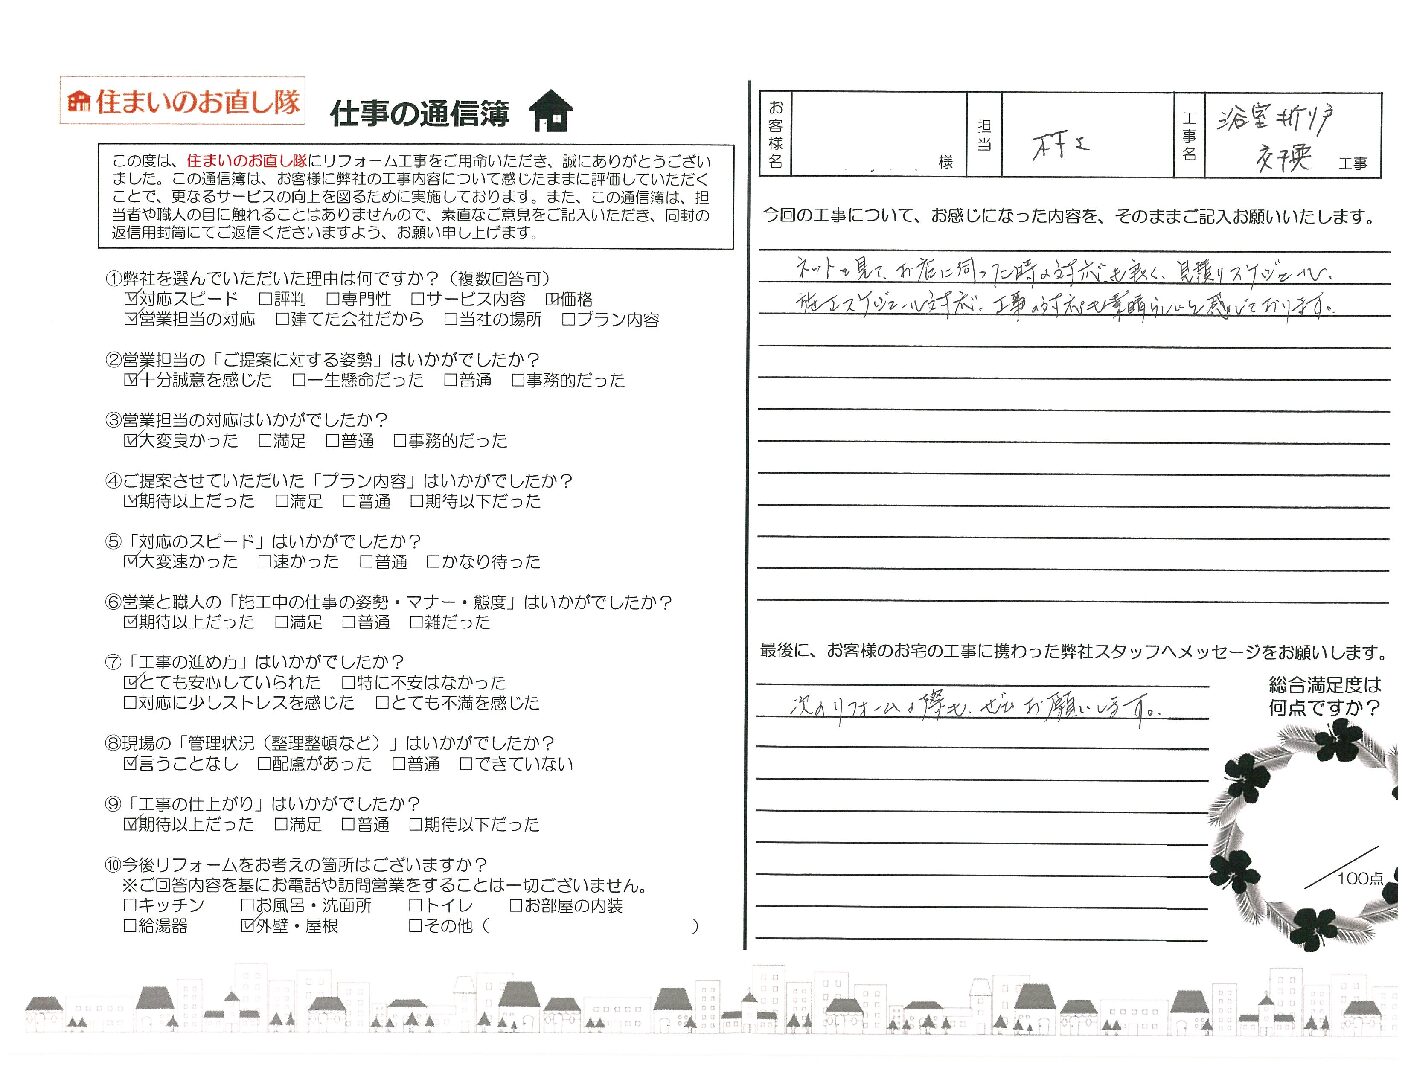 住まいのお直し隊
仕事の通信簿
この度は、住まいのお直し隊にリフォーム工事をご用命いただき、誠にありがとうござい
ました。この通信簿は、お客様に弊社の工事内容について感じたままに評価していただく
ことで、更なるサービスの向上を図るために実施しております。また、この通信簿は、担
当者や職人の目に触れることはありませんので、素直なご意見をご記入いただき、同封の
返信用封筒にてご返信くださいますよう、お願い申し上げます。
①弊社を選んでいただいた理由は何ですか？（複数回答可）
☑対応スピード □評判 □専門性 □サービス内容 ☑価格
☑営業担当の対応 □建てた会社だから □当社の場所 □プラン内容
②営業担当の「ご提案に対する姿勢」はいかがでしたか？
☑十分誠意を感じた □一生懸命だった □普通 □事務的だった
③営業担当の対応はいかがでしたか？
☑大変良かった □満足 □普通 □事務的だった
④ご提案させていただいた「プラン内容」はいかがでしたか？
☑期待以上だった □満足 □普通 □期待以下だった
⑤「対応のスピード」はいかがでしたか？
☑大変速かった □速かった □普通 □かなり待った
⑥営業と職人の「施工中の仕事の姿勢・マナー・態度」はいかがでしたか？
☑期待以上だった □満足 □普通 □雑だった
⑦「工事の進め方」はいかがでしたか？
☑とても安心していられた □特に不安はなかった
□対応に少しストレスを感じた □とても不満を感じた
⑧現場の「管理状況（整理整頓など）」はいかがでしたか？
☑言うことなし □配慮があった □普通 □できていない
⑨「工事の仕上がり」はいかがでしたか？
☑期待以上だった □満足 □普通 □期待以下だった
⑩今後リフォームをお考えの箇所はございますか？
※ご回答内容を基にお電話や訪問営業をすることは一切ございません。
□キッチン □お風呂・洗面所 □トイレ □お部屋の内装
□給湯器 ☑外壁・屋根 □その他（ ）
お客様名 様 担当 村上 工事名 浴室折り戸
交換 工事
今回の工事について、お感じになった内容を、そのままご記入お願いいたします。
ネットを見て、お店に伺った時の対応も良く、見積りスケジュール、
施工スケジュール対応、工事の対応も素晴らしいと感じております。
最後に、お客様のお宅の工事に携わった弊社スタッフへメッセージをお願いします。
次のリフォームの際も、ぜひお願いします。
総合満足度は
何点ですか？
／100点